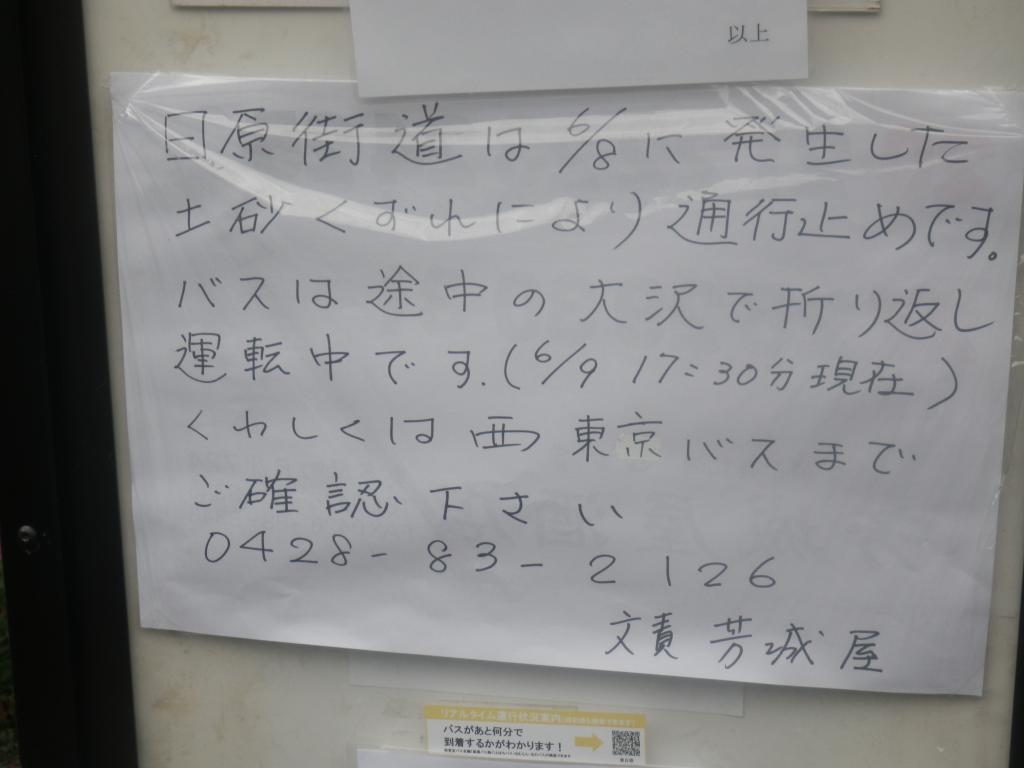 以上
日原街道は6/8に発生した
土砂くずれにより通行止めです。
バスは途中の大沢で折り返し
運転中です.(6/9 17:30分現在)
くわしくは西東京バスまで
ご確認下さい
0428-83-2126
文責 芳城屋
リアルタイム運行状況案内
バスがあと何分で
到着するかがわかります!